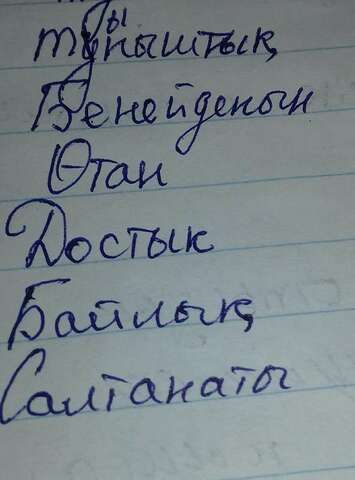 тыныштық
Бенейденын
Отан
Достык
Байлық
Салтанаты